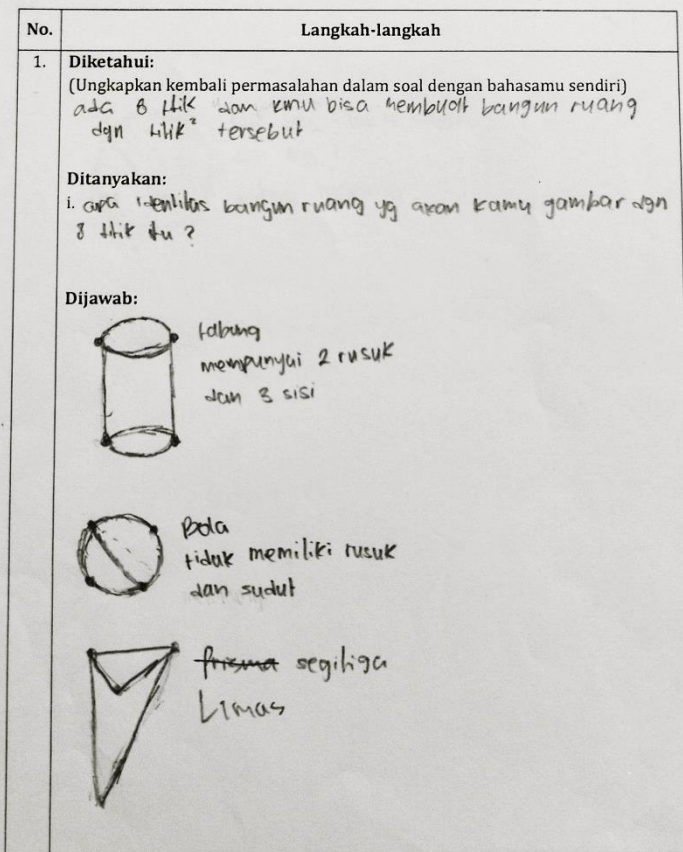 No.
Langkah-langkah
1.
Diketahui:
(Ungkapkan kembali permasalahan dalam soal dengan bahasamu sendiri)
ada 8 titik dan kmu bisa membuat bangun ruang
dgn titik² tersebut
Ditanyakan:
i. apa identitas bangun ruang yg akan kamu gambar dgn
8 titik itu ?
Dijawab:
tabung
mempunyai 2 rusuk
dan 3 sisi
Bola
tidak memiliki rusuk
dan sudut
prisma segitiga
Limas